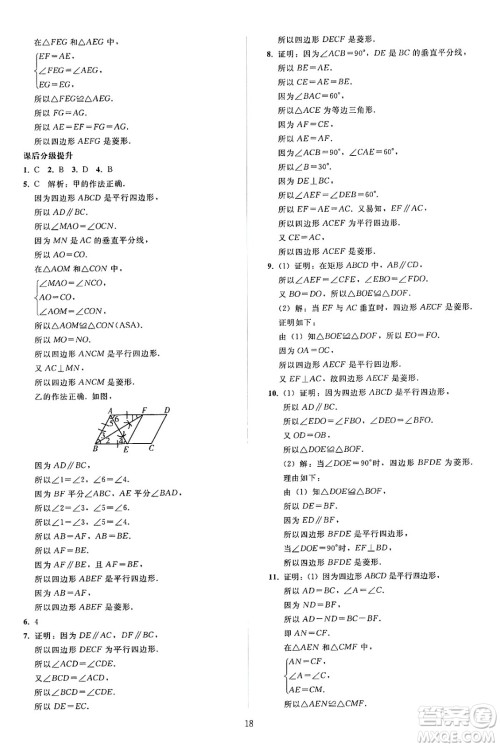 在△FEG和△AEG中,
EF=AE,
∠FEG=∠AEG,
EG=EG,
所以△FEG≌△AEG.
所以FG=AG.
所以AE=EF=FG=AG.
所以四边形AEFG是菱形.
课后分级提升
1. C 2. B 3. D 4. B
5. C 解析:甲的作法正确.
因为四边形ABCD是平行四边形,
所以AD∥BC.
所以∠MAO=∠OCN.
因为MN是AC的垂直平分线,
所以AO=CO.
在△AOM和△CON中,
∠MAO=∠NCO,
AO=CO,
∠AOM=∠CON,
所以△AOM≌△CON(ASA).
所以MO=NO.
所以四边形ANCM是平行四边形.
又AC⊥MN,
所以四边形ANCM是菱形.
乙的作法正确.如图,
A F D
B E C
因为AD∥BC,
所以∠1=∠2,∠6=∠4.
因为BF平分∠ABC,AE平分∠BAD,
所以∠2=∠3,∠5=∠6.
所以∠1=∠3,∠5=∠4.
所以AB=AF,AB=BE.
所以AF=BE.
因为AF∥BE,且AF=BE,
所以四边形ABEF是平行四边形.
因为AB=AF,
所以四边形ABEF是菱形.
6. 4
7. 证明:因为DE∥AC,DF∥BC,
所以四边形DECF是平行四边形.
所以∠ACD=∠CDE.
又∠BCD=∠ACD,
所以∠BCD=∠CDE.
所以DE=EC.
所以四边形DECF是菱形.
8. 证明:因为∠ACB=90°,DE是BC的垂直平分线,
所以DE∥AC.
所以BE=AE.
所以AE=CE.
因为∠BAC=60°,
所以△ACE为等边三角形.
所以AC=CE.
所以∠B=30°.
所以BE=AC.又易知,
所以四边形ACEF为平行四边形.
又CE=AC,
所以四边形ACEF为菱形.
9. (1)证明:在矩形ABCD中,AB∥CD,
所以∠BEO=∠DFO,∠EBO=∠FDO.
又BO=DO,
所以△BOE≌△DOF.
(2)解:当EF与AC垂直时,四边形AECF是菱形.
证明如下:
由(1)知△BOE≌△DOF,所以EO=FO.
因为OA=OC,
所以四边形AECF是平行四边形.
又EF⊥AC,故四边形AECF是菱形.
10. (1)证明:因为四边形ABCD是平行四边形,
所以AD∥BC.
所以∠EDO=∠FBO,∠DEO=∠BFO.
又OB=OD,
所以△DOE≌△BOF.
(2)解:当∠DOE=90°时,四边形BFDE为菱形.
理由如下:
由(1)知△DOE≌△BOF,
所以DE=BF.
又ED∥BF,
所以四边形BFDE是平行四边形.
因为∠DOE=90°,所以EF⊥BD,
所以四边形BFDE为菱形.
11. 证明:(1)因为四边形ABCD是平行四边形,
所以∠A=∠C,AD=BC.
因为ND=BM,
所以AD-ND=BC-BM.
即AN=CM.
在△AEN和△CFM中,
AN=CM,
∠A=∠C,
AE=CF,
18